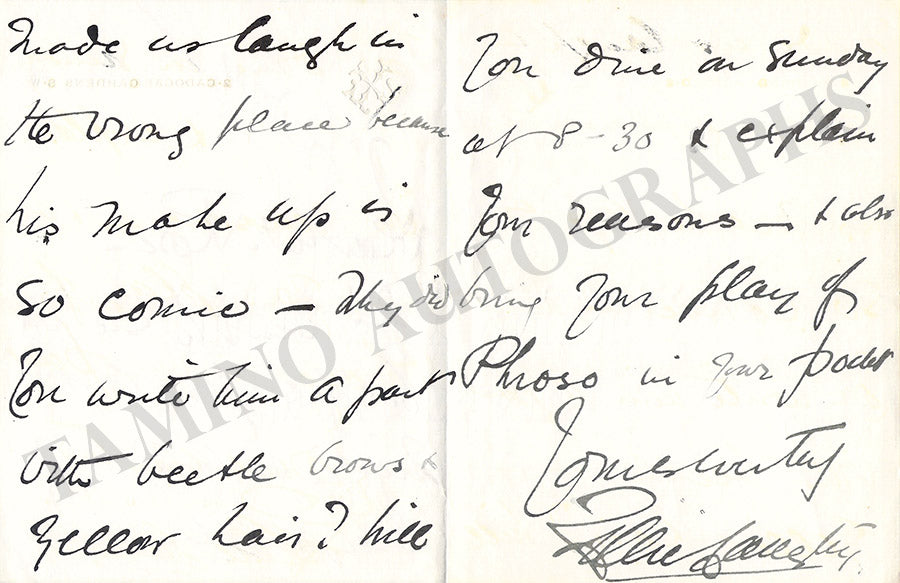 Made us laugh in
the wrong place because
his make up is
so comic – Why did
you write him a part
with beetle brows &
yellow hair? Will
you dine on Sunday
at 8-30 & explain
your reasons – & also
bring your play of
Phroso in your pocket
Yours
Lillie Langtry
2·CADOGAN GARDENS S·W·
TAMINO AUTOGRAPHS